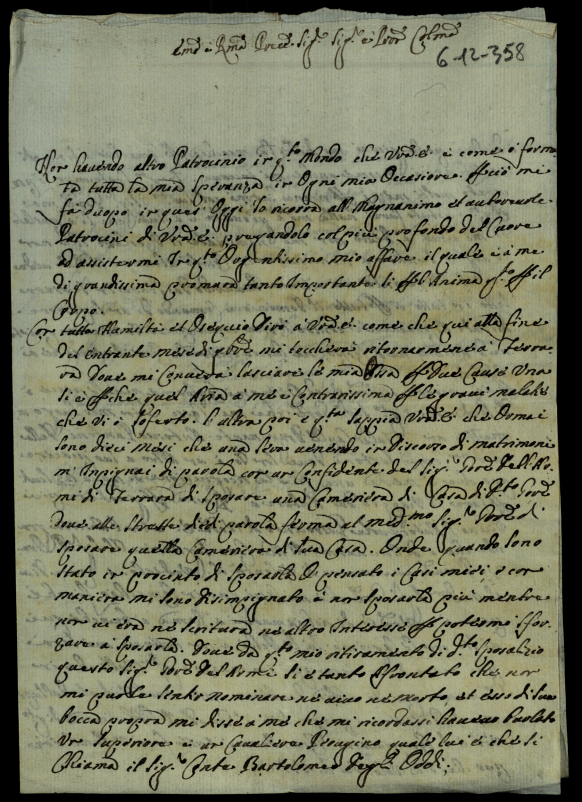 6-12-358
Non havendo altro Patrocinio in q.to Mondo che V.ra E. e come o forma
ta tutta la mia Speranza in Ogni mia Occasione. mi
fà duopo in quest Oggi Io ricorra all Magnanimo et autorevole
Patrocini di V.ra E. pregandolo col più profondo del Cuore
ad assistermi In q.to Urgentissimo mio affare il quale è à me
di grandissima tanto Importante si Anima q.to il
Corpo.
Con tutta Hamiltà et Osequio Vivo à V.ra E. come che qui alla fine
del entrante mese di mi toccherà ritornarmene à Ferra
ra Dove mi Converrà lasciare la mia Due Cause Una
si è che quel Aria à me è Contrarissima le gravi malatie
che vi ò soferto. L altra poi è q.ta sappia V.ra E. che Ormai
sono dieci mesi che una sera venendo in Discorso di matrimonio
m Impignai di parola con un Confidente del Sig.r
di Ferrara di Sposare una Cameriera di Casa di
dove alle Strette diedi parola ferma al med.mo Sig.r di
sposare quella Cameriera di sua Casa. Onde quando sono
stato in procinto di sposarla ò pensato i Casi miei, e con
maniera mi sono disimpignato à non sposarla più mentre
non vi era ne scritura ne altro Interesse potermi sfor
zare à sposarla. Dove da q.to mio ritiramento di d.to sposalizio
questo Sig.r si è tanto che non
mi puole sentir nominare ne vivo ne morto, et esso di sua
bocca propria mi disse à me che mi ricordassi havevo burlato
Un Superiore e un Cavaliere Perugino quale lui è che si
Chiama il Sig.r Conte Bartolomeo degl Oddi;